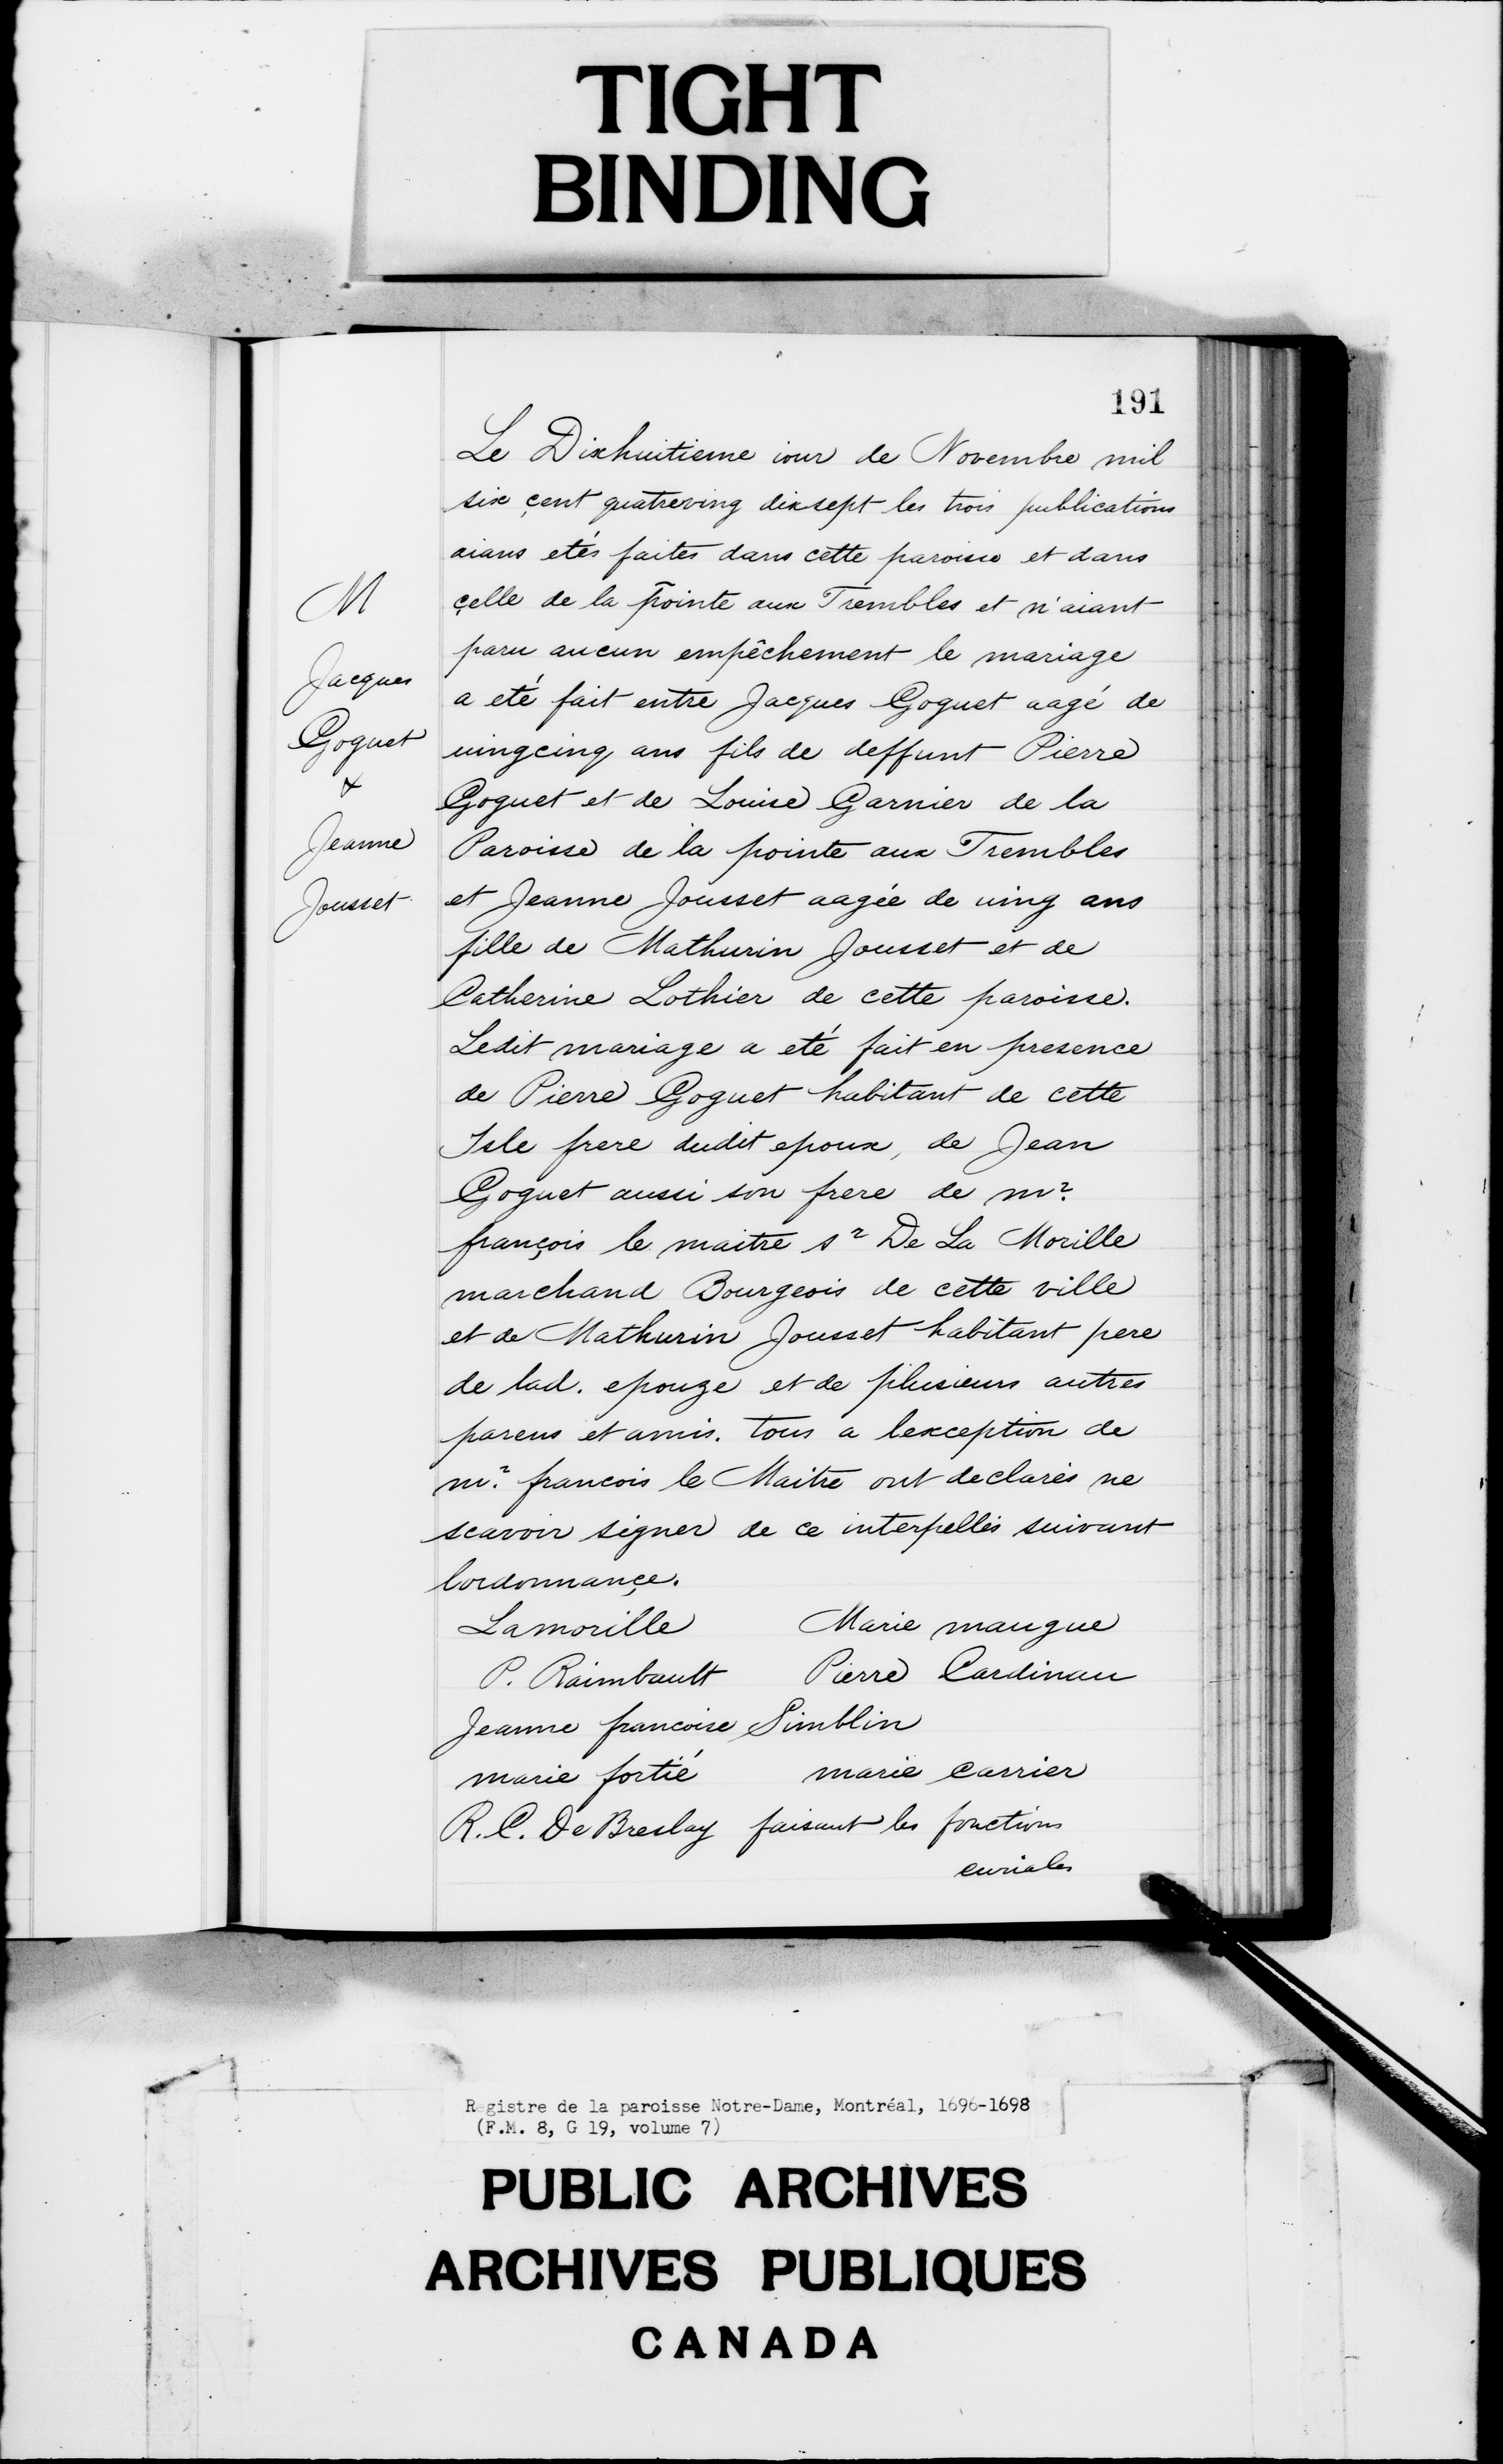 TIGHT
BINDING
191
Le Dixhuitieme iour de Novembre mil
six çent quatreving dixsept les trois publications
aians etés faites dans cette paroisse et dans
çelle de la pointe aux Trembles et n'aiant
paru aucun empêchement le mariage
a eté fait entre Jacques Goguet aagé de
uingcinq ans fils de deffunt Pierre
Goguet et de Louise Garnier de la
Paroisse de la pointe aux Trembles
et Jeanne Jousset aagée de uing ans
fille de Mathurin Jousset et de
Catherine Lothier de cette paroisse.
Ledit mariage a eté fait en presence
de Pierre Goguet habitant de cette
Isle frere dudit epoux, de Jean
Goguet aussi son frere de mr.
françois le maitre sr De La Morille
marchand Bourgeois de cette ville
et de Mathurin Jousset habitant pere
de lad. epouze et de plusieurs autres
parens et amis. tous a lexception de
mr. francois le Maitre ont declarés ne
scavoir signer de ce interpellés suivant
lordonnançe.
Lamorille Marie maugue
P. Raimbault Pierre Cardinau
Jeanne francoise Simblin
marie fortié marie carrier
R. C. De Breslay faisant les fonctions
curiales
M
Jacques
Goguet
&
Jeanne
Jousset
Registre de la paroisse Notre-Dame, Montréal, 1696-1698
(F.M. 8, G 19, volume 7)
PUBLIC ARCHIVES
ARCHIVES PUBLIQUES
CANADA